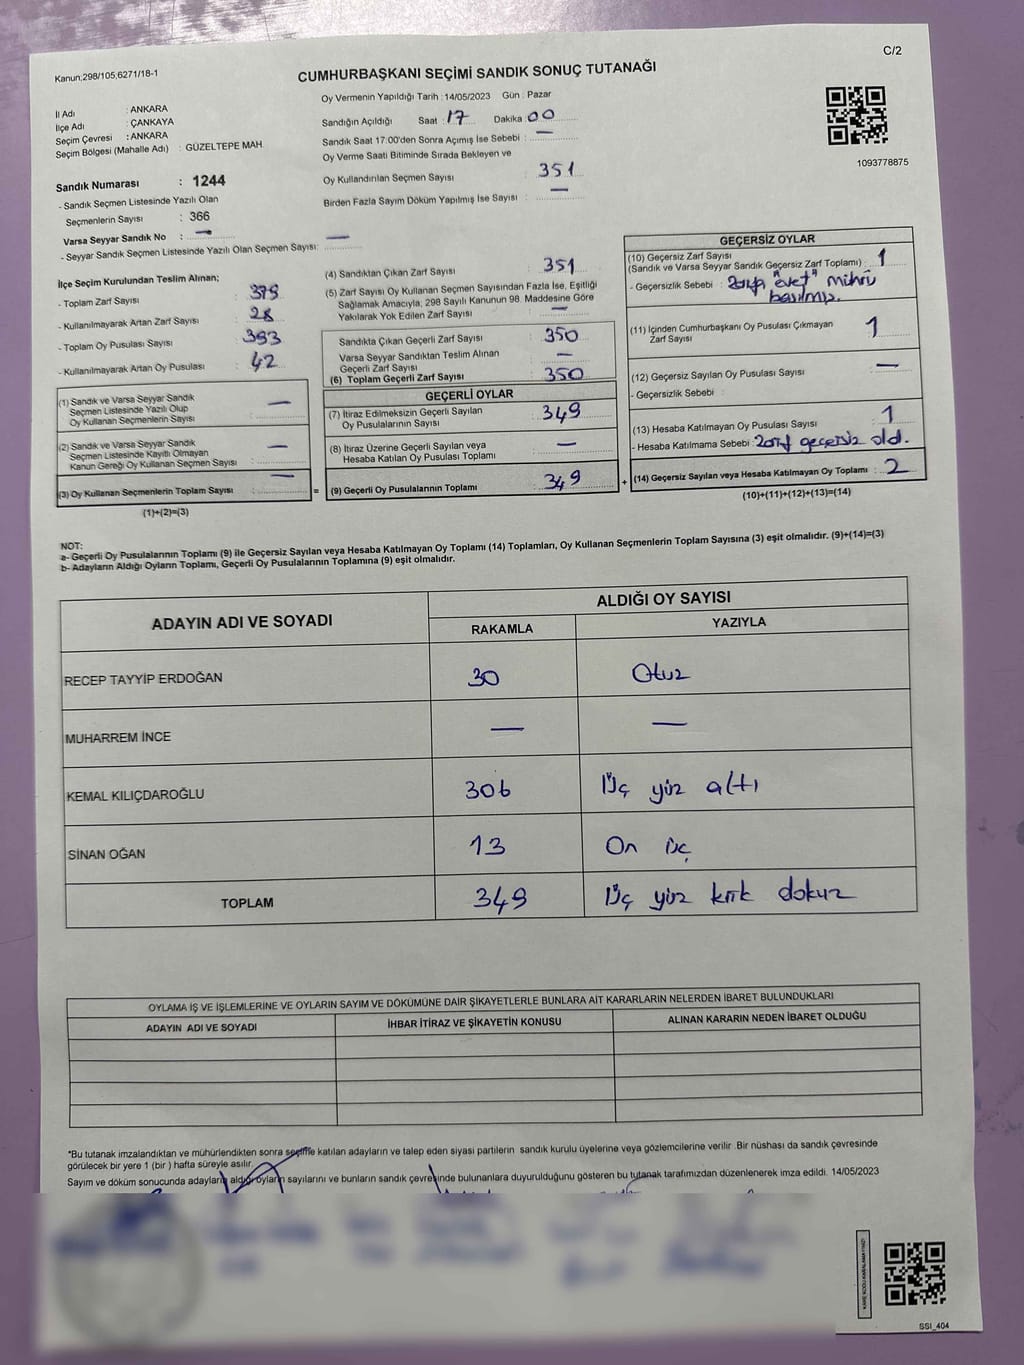 C/2
Kanun;298/105,6271/18-1
CUMHURBAŞKANI SEÇİMİ SANDIK SONUÇ TUTANAĞI
İl Adı : ANKARA
İlçe Adı : ÇANKAYA
Seçim Çevresi : ANKARA
Seçim Bölgesi (Mahalle Adı) : GÜZELTEPE MAH.
Sandık Numarası : 1244
- Sandık Seçmen Listesinde Yazılı Olan
Seçmenlerin Sayısı : 366
Varsa Seyyar Sandık No : —
- Seyyar Sandık Seçmen Listesinde Yazılı Olan Seçmen Sayısı: —
Oy Vermenin Yapıldığı Tarih : 14/05/2023 Gün : Pazar
Sandığın Açıldığı Saat : 17 Dakika : 00
Sandık Saat 17:00'den Sonra Açımış İse Sebebi : —
Oy Verme Saati Bitiminde Sırada Bekleyen ve
Oy Kullandırılan Seçmen Sayısı : 351
Birden Fazla Sayım Döküm Yapılmış İse Sayısı : —
1093778875
İlçe Seçim Kurulundan Teslim Alınan;
- Toplam Zarf Sayısı : 379
- Kullanılmayarak Artan Zarf Sayısı : 28
- Toplam Oy Pusulası Sayısı : 393
- Kullanılmayarak Artan Oy Pusulası : 42
(1) Sandık ve Varsa Seyyar Sandık
Seçmen Listesinde Yazılı Olup
Oy Kullanan Seçmenlerin Sayısı : —
(2) Sandık ve Varsa Seyyar Sandık
Seçmen Listesinde Kayıtlı Olmayan
Kanun Gereği Oy Kullanan Seçmen Sayısı : —
(3) Oy Kullanan Seçmenlerin Toplam Sayısı : —
(1)+(2)=(3)
=
(4) Sandıktan Çıkan Zarf Sayısı : 351
(5) Zarf Sayısı Oy Kullanan Seçmen Sayısından Fazla İse, Eşitliği
Sağlamak Amacıyla; 298 Sayılı Kanunun 98. Maddesine Göre
Yakılarak Yok Edilen Zarf Sayısı : —
Sandıkta Çıkan Geçerli Zarf Sayısı : 350
Varsa Seyyar Sandıktan Teslim Alınan
Geçerli Zarf Sayısı : —
(6) Toplam Geçerli Zarf Sayısı : 350
GEÇERLİ OYLAR
(7) İtiraz Edilmeksizin Geçerli Sayılan
Oy Pusulalarının Sayısı : 349
(8) İtiraz Üzerine Geçerli Sayılan veya
Hesaba Katılan Oy Pusulası Toplamı : —
(9) Geçerli Oy Pusulalarının Toplamı : 349
+
GEÇERSİZ OYLAR
(10) Geçersiz Zarf Sayısı
(Sandık ve Varsa Seyyar Sandık Geçersiz Zarf Toplamı) : 1
- Geçersizlik Sebebi : Zarfa "evet" mührü
basılmış.
(11) İçinden Cumhurbaşkanı Oy Pusulası Çıkmayan
Zarf Sayısı : 1
(12) Geçersiz Sayılan Oy Pusulası Sayısı : —
- Geçersizlik Sebebi :
(13) Hesaba Katılmayan Oy Pusulası Sayısı : 1
- Hesaba Katılmama Sebebi : Zarf geçersiz old.
(14) Geçersiz Sayılan veya Hesaba Katılmayan Oy Toplamı : 2
(10)+(11)+(12)+(13)=(14)
NOT:
a- Geçerli Oy Pusulalarının Toplamı (9) ile Geçersiz Sayılan veya Hesaba Katılmayan Oy Toplamı (14) Toplamları, Oy Kullanan Seçmenlerin Toplam Sayısına (3) eşit olmalıdır. (9)+(14)=(3)
b- Adayların Aldığı Oyların Toplamı, Geçerli Oy Pusulalarının Toplamına (9) eşit olmalıdır.
ADAYIN ADI VE SOYADI
ALDIĞI OY SAYISI
RAKAMLA YAZIYLA
RECEP TAYYİP ERDOĞAN 30 Otuz
MUHARREM İNCE — —
KEMAL KILIÇDAROĞLU 306 Üç yüz altı
SİNAN OĞAN 13 On üç
TOPLAM 349 Üç yüz kırk dokuz
OYLAMA İŞ VE İŞLEMLERİNE VE OYLARIN SAYIM VE DÖKÜMÜNE DAİR ŞİKAYETLERLE BUNLARA AİT KARARLARIN NELERDEN İBARET BULUNDUKLARI
ADAYIN ADI VE SOYADI İHBAR İTİRAZ VE ŞİKAYETİN KONUSU ALINAN KARARIN NEDEN İBARET OLDUĞU
*Bu tutanak imzalandıktan ve mühürlendikten sonra seçime katılan adayların ve talep eden siyasi partilerin sandık kurulu üyelerine veya gözlemcilerine verilir. Bir nüshası da sandık çevresinde
görülecek bir yere 1 (bir ) hafta süreyle asılır.
Sayım ve döküm sonucunda adayların aldığı oyların sayılarını ve bunların sandık çevresinde bulunanlara duyurulduğunu gösteren bu tutanak tarafımızdan düzenlenerek imza edildi. 14/05/2023
KARE KODU KARALAMAYINIZ!
SSI_404